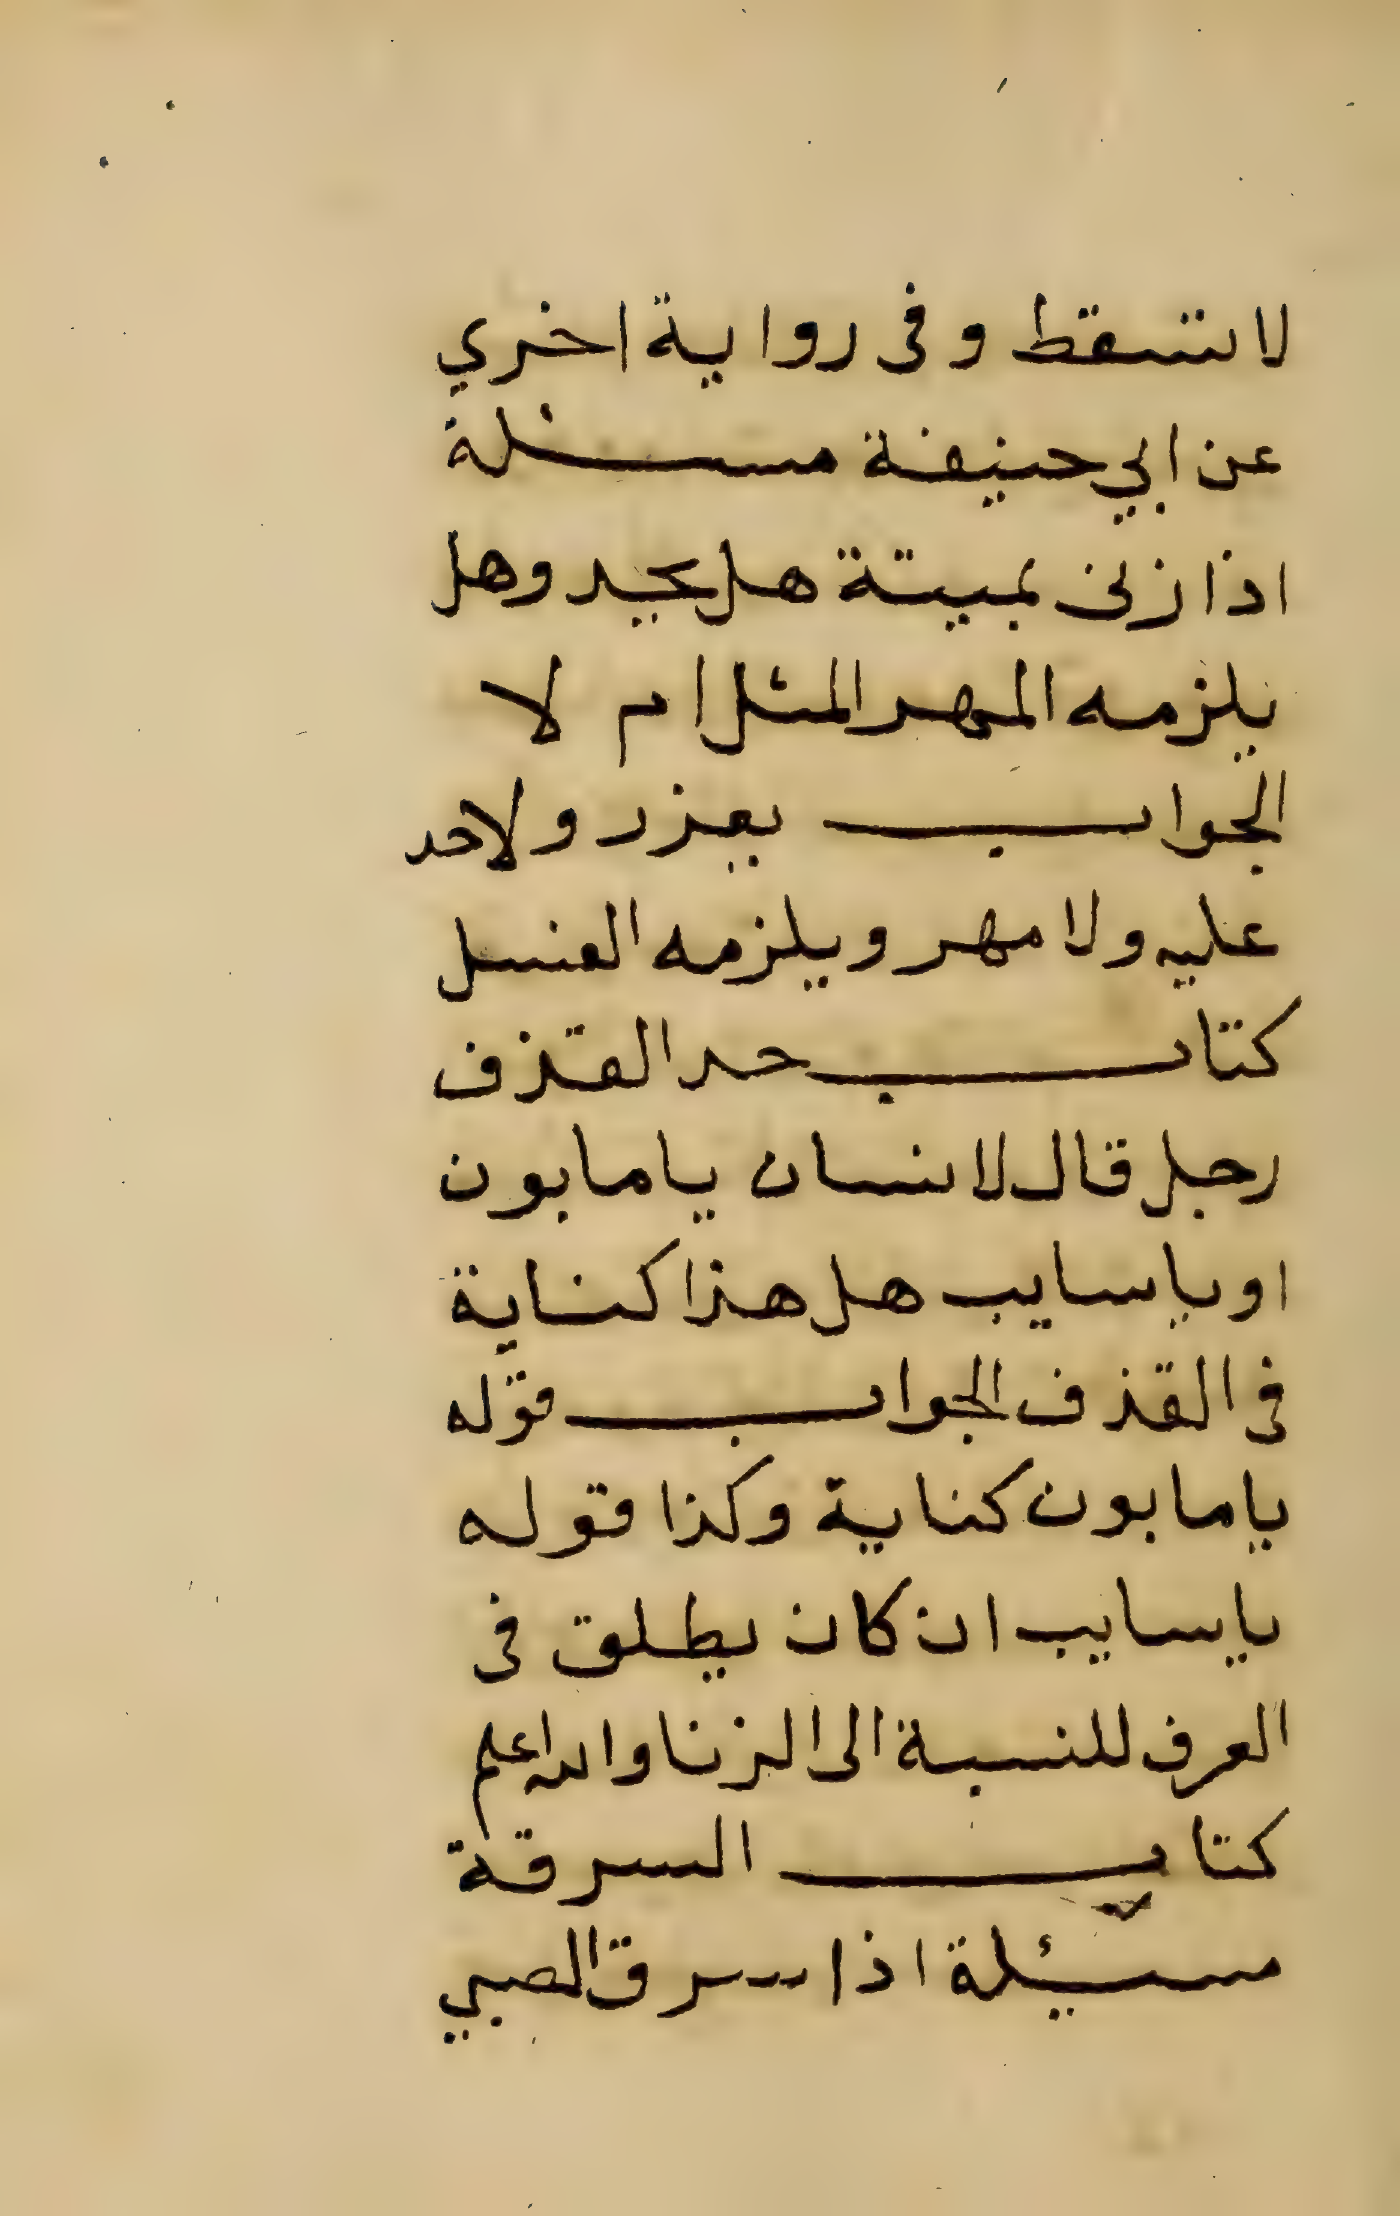 لا تسقط وفى رواية اخري
عن ابي حنيفة مسئلة
اذا زنى بميتة هل يحد وهل
يلزمه المهر المثل ام لا
الجواب يعزر ولا حد
عليه ولا مهر ويلزمه الغسل
كتاب حد القذف
رجل قال لانسان يا مابون
او يا سايب هل هذا كناية
فى القذف الجواب قوله
يا مابون كناية وكذا قوله
يا سايب ان كان يطلق فى
العرف للنسبة الى الزنا والله اعلم
كتاب السرقة
مسئلة اذا سرق الصبي